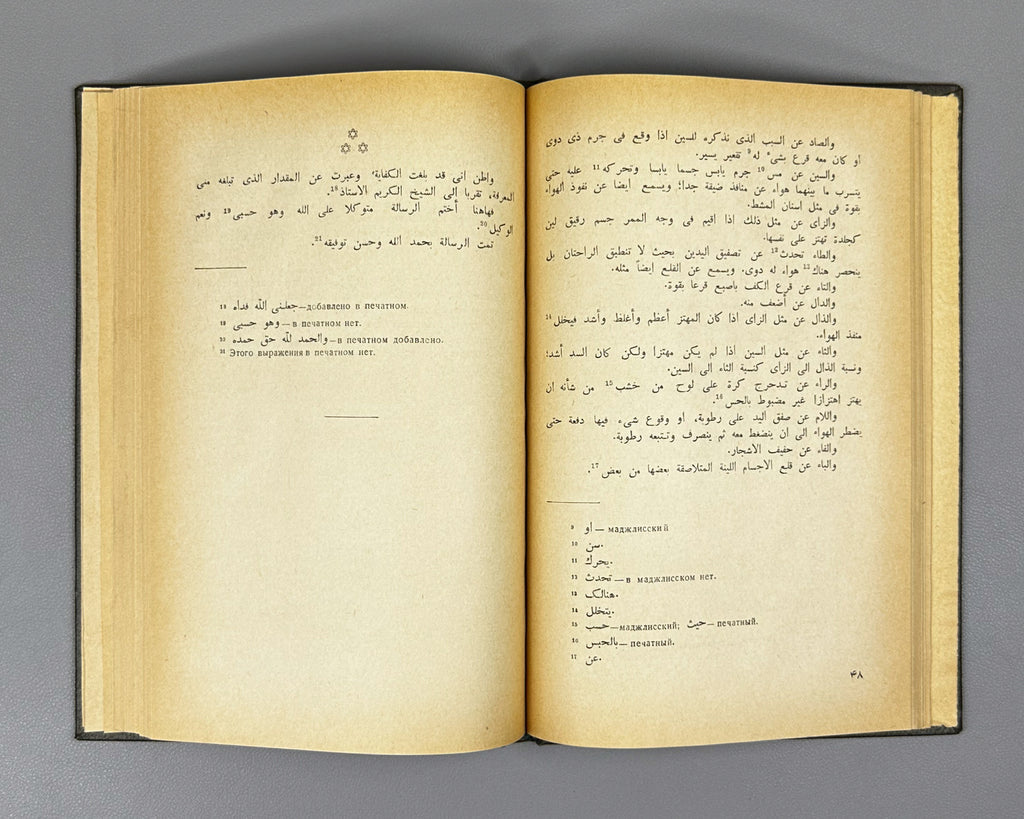 والصاد عن السبب الذى نذكره للسين اذا وقع فى جرم ذى دوى
او كان معه قرع بشىء له⁹ تقعير يسير.
والسين عن مس¹⁰ جرم يابس جسما يابسا وتحركه¹¹ عليه حتى
يتسرب ما بينهما هواء عن منافذ ضيقة جدا؛ ويسمع ايضا عن نفوذ الهواء
بقوة فى مثل اسنان المشط.
والزاى عن مثل ذلك اذا اقيم فى وجه الممر جسم رقيق لين
كجلدة تهتز على نفسها.
والطاء تحدث¹² عن تصفيق اليدين بحيث لا تنطبق الراحتان بل
ينحصر هناك¹³ هواء له دوى. ويسمع عن القلع ايضاً مثله.
والتاء عن قرع الكف باصبع قرعا بقوة.
والدال عن أضعف منه.
والذال عن مثل الزاى اذا كان المهتز أعظم وأغلظ وأشد فيخلل¹⁴
منفذ الهواء.
والثاء عن مثل السين اذا لم يكن مهتزا ولكن كان السد أشد؛
ونسبة الذال الى الزاى كنسبة الثاء الى السين.
والراء عن تدحرج كرة على لوح من خشب¹⁵ من شأنه ان
يهتز اهتزازا غير مضبوط بالحس¹⁶.
واللام عن صفق اليد على رطوبة، او وقوع شىء فيها دفعة حتى
يضطر الهواء الى ان ينضغط معه ثم ينصرف وتتبعه رطوبة.
والفاء عن حفيف الاشجار.
والباء عن قلع الاجسام اللينة المتلاصقة بعضها من بعض¹⁷.
⁹ او — маджлисский
¹⁰ سن.
¹¹ يحرك.
¹² تحدث — в маджлисском нет.
¹³ هنالك.
¹⁴ يتخلل.
¹⁵ حسب — маджлисский; حيث — печатный.
¹⁶ بالحبس — печатный.
¹⁷ عن.
۴۸
واظن انى قد بلغت الكفاية، وعبرت عن المقدار الذى تبلغه منى
المعرفة، تقربا إلى الشيخ الكريم الاستاذ¹⁸.
فهاهنا أختم الرسالة متوكلا على الله وهو حسبى¹⁹ ونعم
الوكيل²⁰.
تمت الرسالة بحمد الله وحسن توفيقه²¹.
¹⁸ جعلنى اللّه فداه — добавлено в печатном.
¹⁹ وهو حسبى — в печатном нет.
²⁰ والحمد للّه حق حمده — в печатном добавлено.
²¹ Этого выражения в печатном нет.